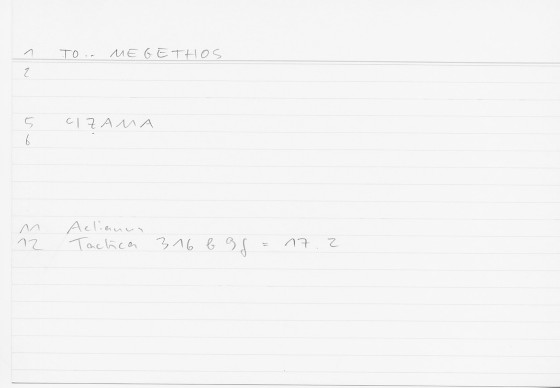 1 TO.. MEGETHOS
2
5 CIẒAMA
6
11 Aelianus
12 Tactica 316 b 9f = 17 2